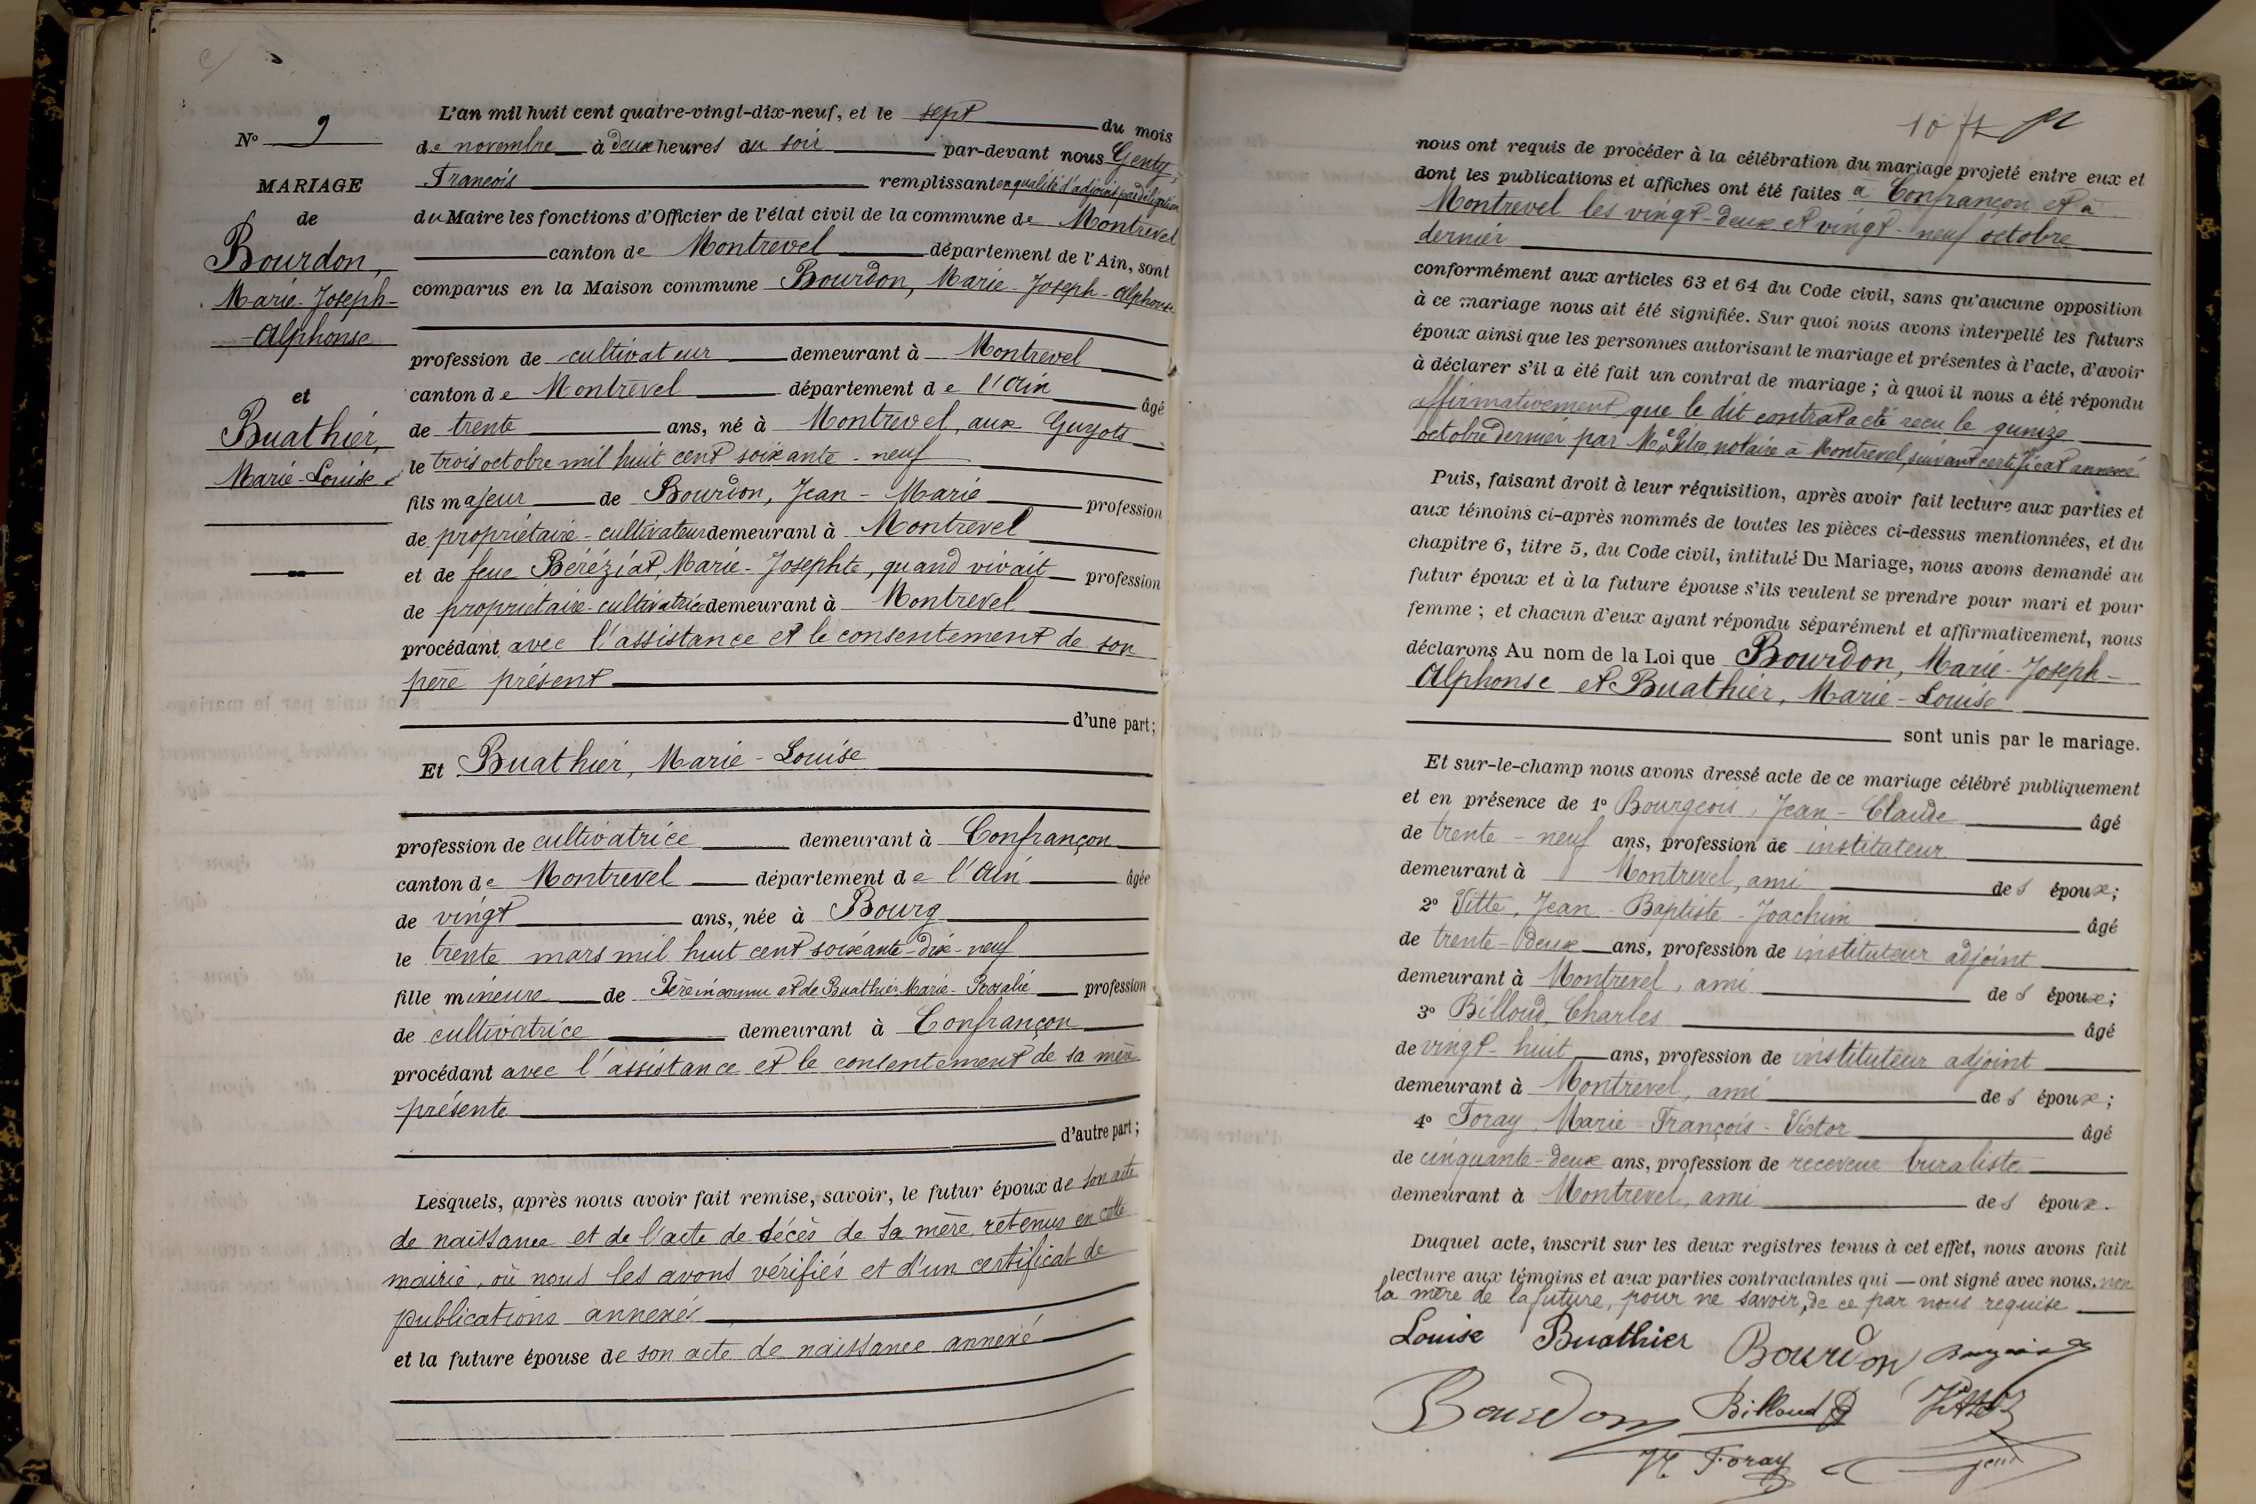 N° 9
MARIAGE
de
Bourdon,
Marie-Joseph-
-Alphonse
et
Buathier,
Marie-Louise
L'an mil huit cent quatre-vingt-dix-neuf, et le sept du mois
de novembre à deux heures du soir par-devant nous Genty,
François remplissant en qualité d'adjoint par délégation
du Maire les fonctions d'Officier de l'état civil de la commune de Montrevel
canton de Montrevel département de l'Ain, sont
comparus en la Maison commune Bourdon, Marie-Joseph-Alphonse
profession de cultivateur demeurant à Montrevel
canton de Montrevel département de l'Ain âgé
de trente ans, né à Montrevel, aux Guyots
le trois octobre mil huit cent soixante-neuf
fils majeur de Bourdon, Jean-Marie profession
de propriétaire-cultivateur demeurant à Montrevel
et de feue Béréziat, Marie-Josephte, quand vivait profession
de propriétaire-cultivatrice demeurant à Montrevel
procédant avec l'assistance et le consentement de son
père présent
d'une part;
Et Buathier, Marie-Louise
profession de cultivatrice demeurant à Confrançon
canton de Montrevel département de l'Ain âgée
de vingt ans, née à Bourg
le trente mars mil huit cent soixante-dix-neuf
fille mineure de Père inconnu et de Buathier Marie-Rosalie profession
de cultivatrice demeurant à Confrançon
procédant avec l'assistance et le consentement de sa mère
présente
d'autre part;
Lesquels, après nous avoir fait remise, savoir, le futur époux de son acte
de naissance et de l'acte de décès de sa mère, retenus en cette
mairie, où nous les avons vérifiés et d'un certificat de
publications annexés
et la future épouse de son acte de naissance annexé
10 ft
nous ont requis de procéder à la célébration du mariage projeté entre eux et
dont les publications et affiches ont été faites à Confrançon et à
Montrevel les vingt-deux et vingt-neuf octobre
dernier
conformément aux articles 63 et 64 du Code civil, sans qu'aucune opposition
à ce mariage nous ait été signifiée. Sur quoi nous avons interpellé les futurs
époux ainsi que les personnes autorisant le mariage et présentes à l'acte, d'avoir
à déclarer s'il a été fait un contrat de mariage; à quoi il nous a été répondu
affirmativement, que le dit contrat acté reçu le quinze
octobre dernier par Me notaire à Montrevel, suivant certificat annexé
Puis, faisant droit à leur réquisition, après avoir fait lecture aux parties et
aux témoins ci-après nommés de toutes les pièces ci-dessus mentionnées, et du
chapitre 6, titre 5, du Code civil, intitulé Du Mariage, nous avons demandé au
futur époux et à la future épouse s'ils veulent se prendre pour mari et pour
femme; et chacun d'eux ayant répondu séparément et affirmativement, nous
déclarons Au nom de la Loi que Bourdon, Marie-Joseph-
Alphonse et Buathier, Marie-Louise
sont unis par le mariage.
Et sur-le-champ nous avons dressé acte de ce mariage célébré publiquement
et en présence de 1° Bourgeois, Jean-Claude âgé
de trente-neuf ans, profession de instituteur
demeurant à Montrevel, ami des époux;
2° Vitte, Jean-Baptiste-Joachim âgé
de trente-deux ans, profession de instituteur adjoint
demeurant à Montrevel, ami des époux;
3° Billoud, Charles âgé
de vingt-huit ans, profession de instituteur adjoint
demeurant à Montrevel, ami des époux;
4° Foray, Marie-François-Victor âgé
de cinquante-deux ans, profession de receveur buraliste
demeurant à Montrevel, ami des époux.
Duquel acte, inscrit sur les deux registres tenus à cet effet, nous avons fait
lecture aux témoins et aux parties contractantes qui — ont signé avec nous, non
la mère de la future, pour ne savoir, de ce par nous requise
Louise Buathier Bourdon Bourgeois
Bourdon Billoud Vitte
Foray